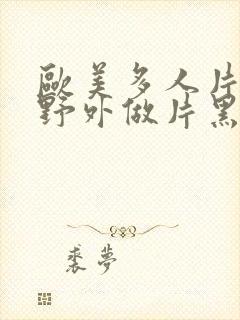 歐美多人片
野外做片黑
裘夢